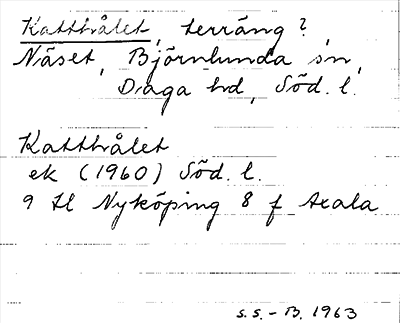 Katthålet, terräng?,
Näset, Björnlunda sn,
Daga hd, Söd. l.
Katthålet
ek (1960) Söd. l.
9 H Nyköping 8 f Axala
S.S. - B. 1963